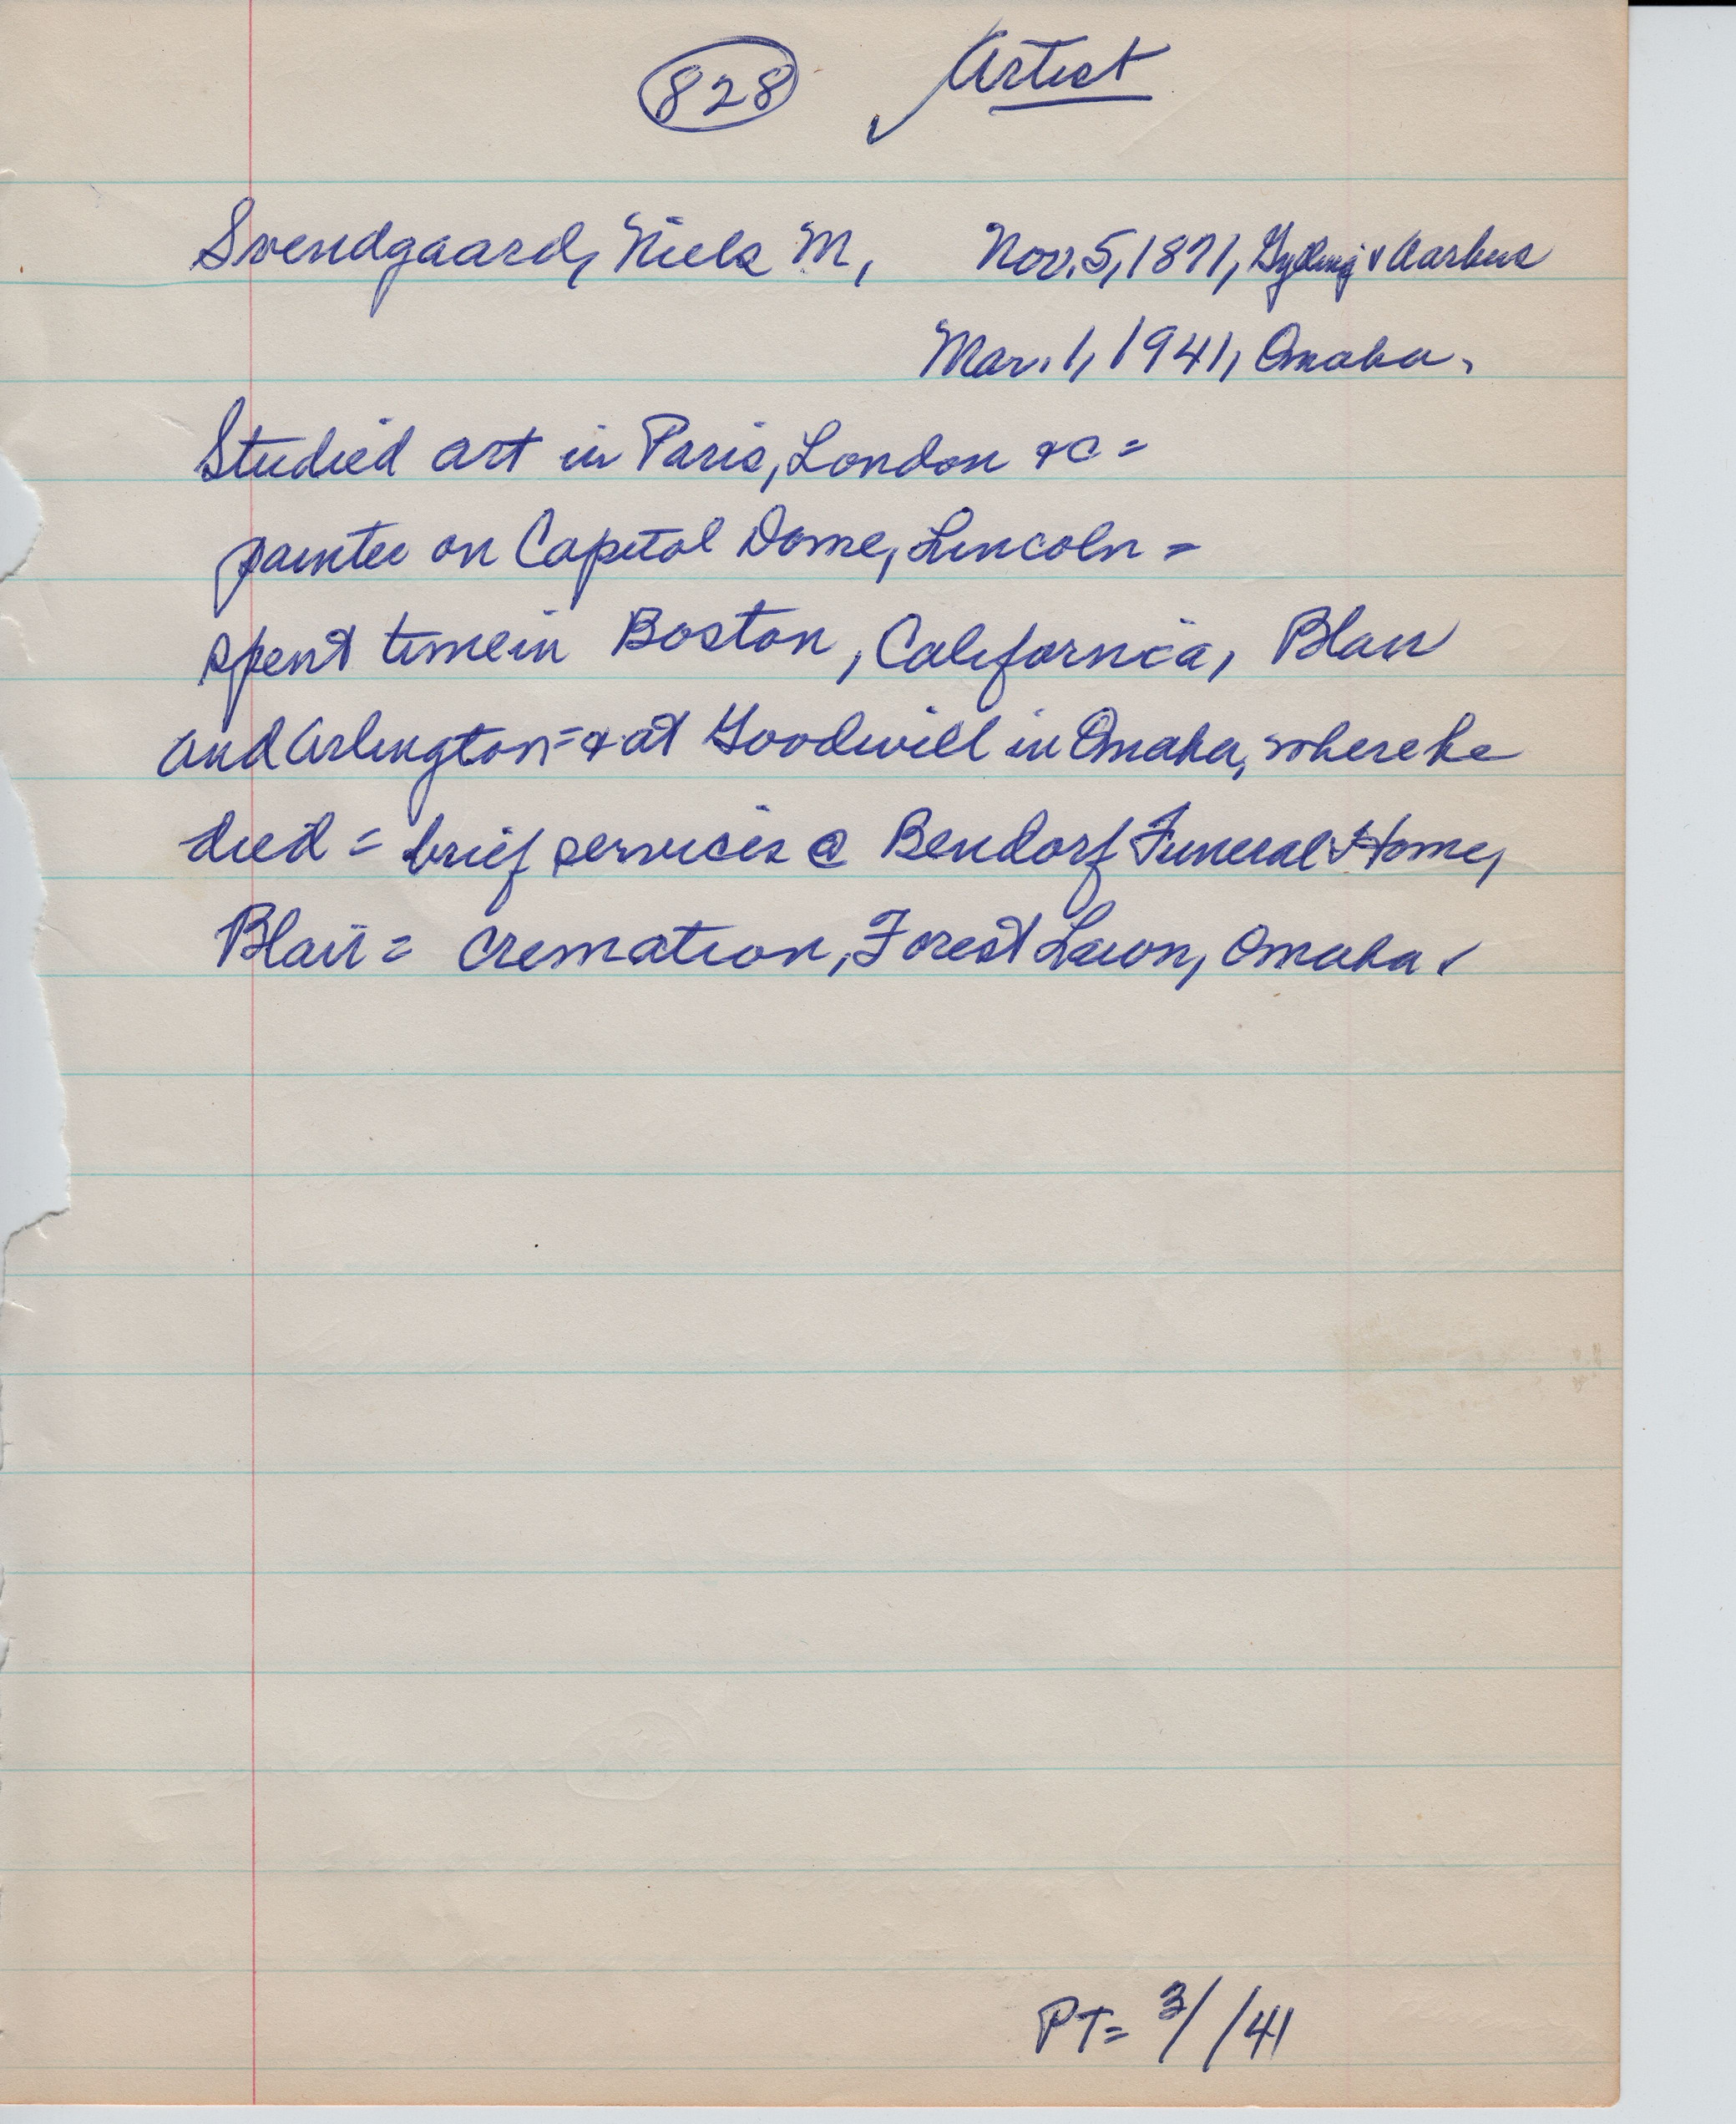 828 Artist
Svendgaard, Niels M, Nov. 5, 1871, Gylling v Aarhus
Mar. 1, 1941, Omaha.
Studied art in Paris, London &c =
painter on Capitol Dome, Lincoln =
spent time in Boston, California, Blair
and Arlington = & at Goodwill in Omaha, where he
died = brief services @ Bendorf Funeral Home,
Blair = cremation, Forest Lawn, Omaha.
PT = 3/ /41